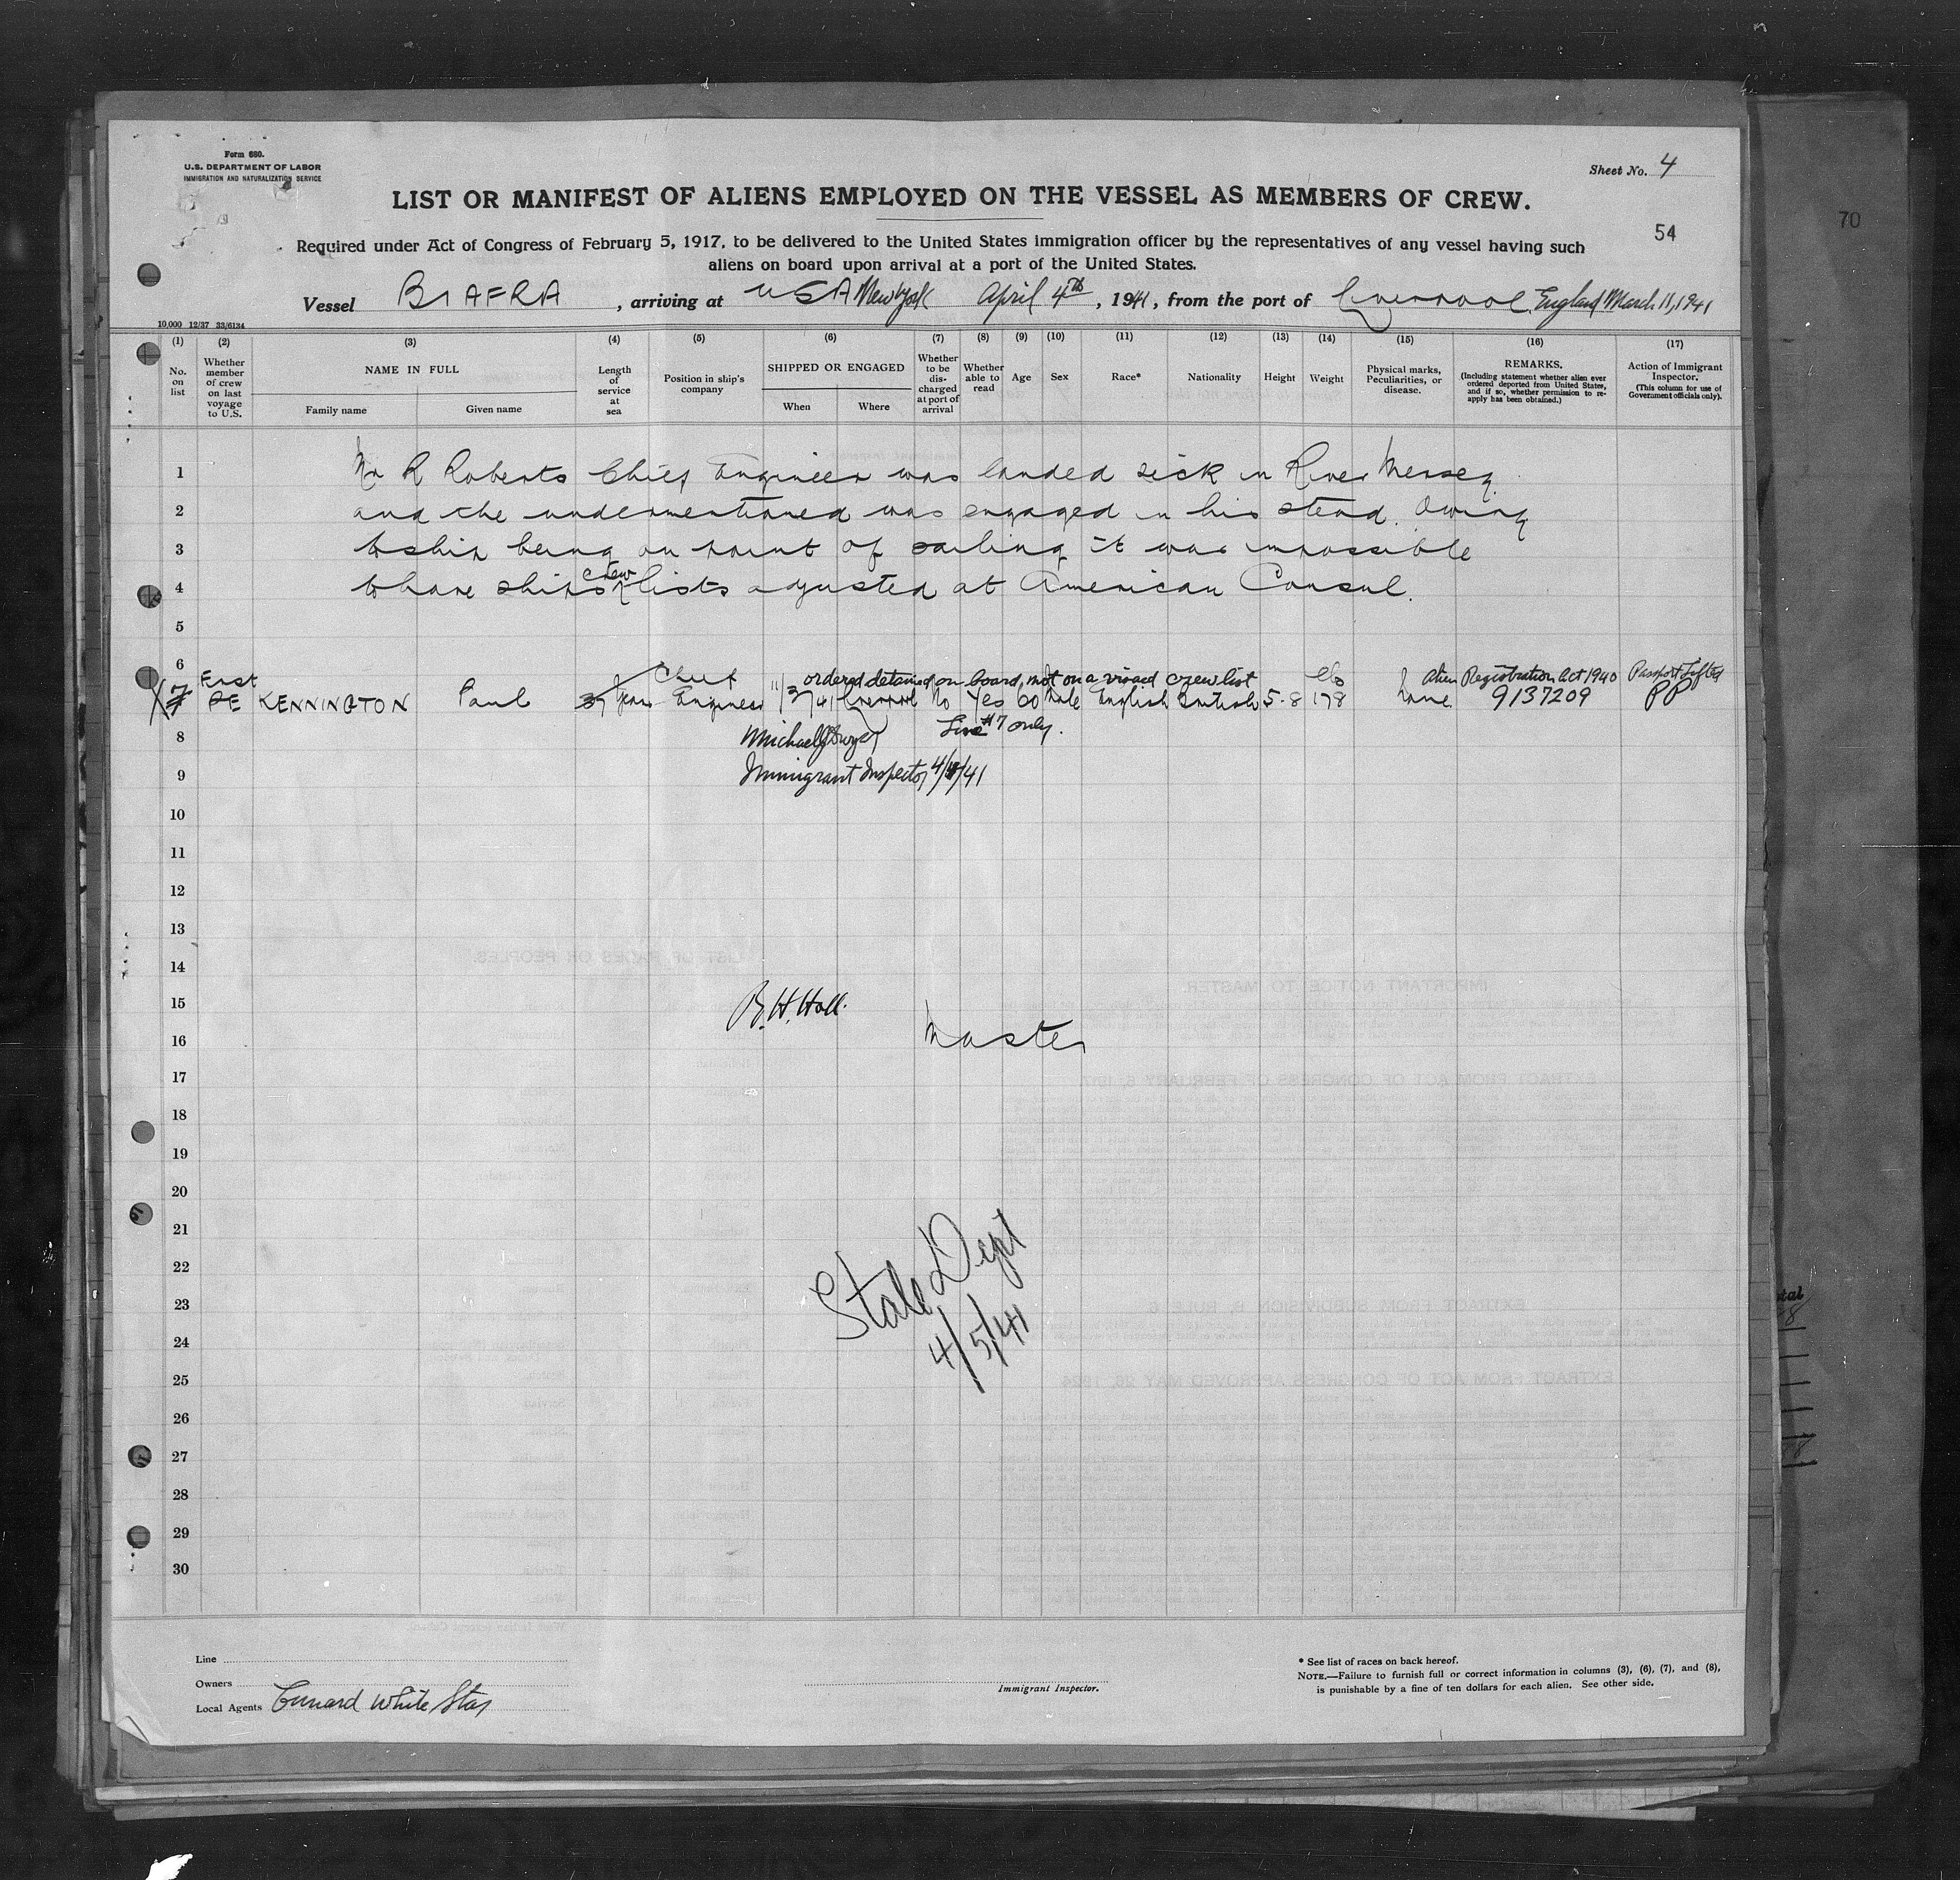 Form 680.
U.S. DEPARTMENT OF LABOR
IMMIGRATION AND NATURALIZATION SERVICE
Sheet No. 4
LIST OR MANIFEST OF ALIENS EMPLOYED ON THE VESSEL AS MEMBERS OF CREW.
54
70
Required under Act of Congress of February 5, 1917, to be delivered to the United States immigration officer by the representatives of any vessel having such
aliens on board upon arrival at a port of the United States.
Vessel BIAFRA, arriving at USA New York April 4th, 1941, from the port of Liverpool England March 11, 1941
10,000 12/37 33/6134
(1) (2) (3) (4) (5) (6) (7) (8) (9) (10) (11) (12) (13) (14) (15) (16) (17)
No. on list
Whether member of crew on last voyage to U.S.
NAME IN FULL
Family name
Given name
Length of service at sea
Position in ship's company
SHIPPED OR ENGAGED
When
Where
Whether to be discharged at port of arrival
Whether able to read
Age
Sex
Race*
Nationality
Height
Weight
Physical marks, Peculiarities, or disease.
REMARKS.
(Including statement whether alien ever ordered deported from United States, and if so, whether permission to reapply has been obtained.)
Action of Immigrant Inspector.
(This column for use of Government officials only).
1 Mr R Roberts Chief Engineer was landed sick in River Mersey
2 and the undermentioned was engaged in his stead. Owing
3 to ship being on point of sailing it was impossible
4 to have ships crew lists adjusted at American Consul.
5
6
ordered detained on board, not on a visaed crew list
Alien Registration Act 1940 Passport Lifted
7 First PE KENNINGTON Paul 37 Years Chief Engineer 11/3/41 Liverpool No Yes 60 Male English British 5-8 178 lb None 9137209 PP
8 Line #7 only.
9 Immigrant Inspector 4/4/41
10
11
12
13
14
15 B.H. Hall.
16 Master
17
18
19
20
21
22
23
24
25
26
27
28
29
30
State Dept
4/5/41
Line
Owners
Local Agents Cunard White Star
Immigrant Inspector.
* See list of races on back hereof.
NOTE.—Failure to furnish full or correct information in columns (3), (6), (7), and (8),
is punishable by a fine of ten dollars for each alien. See other side.